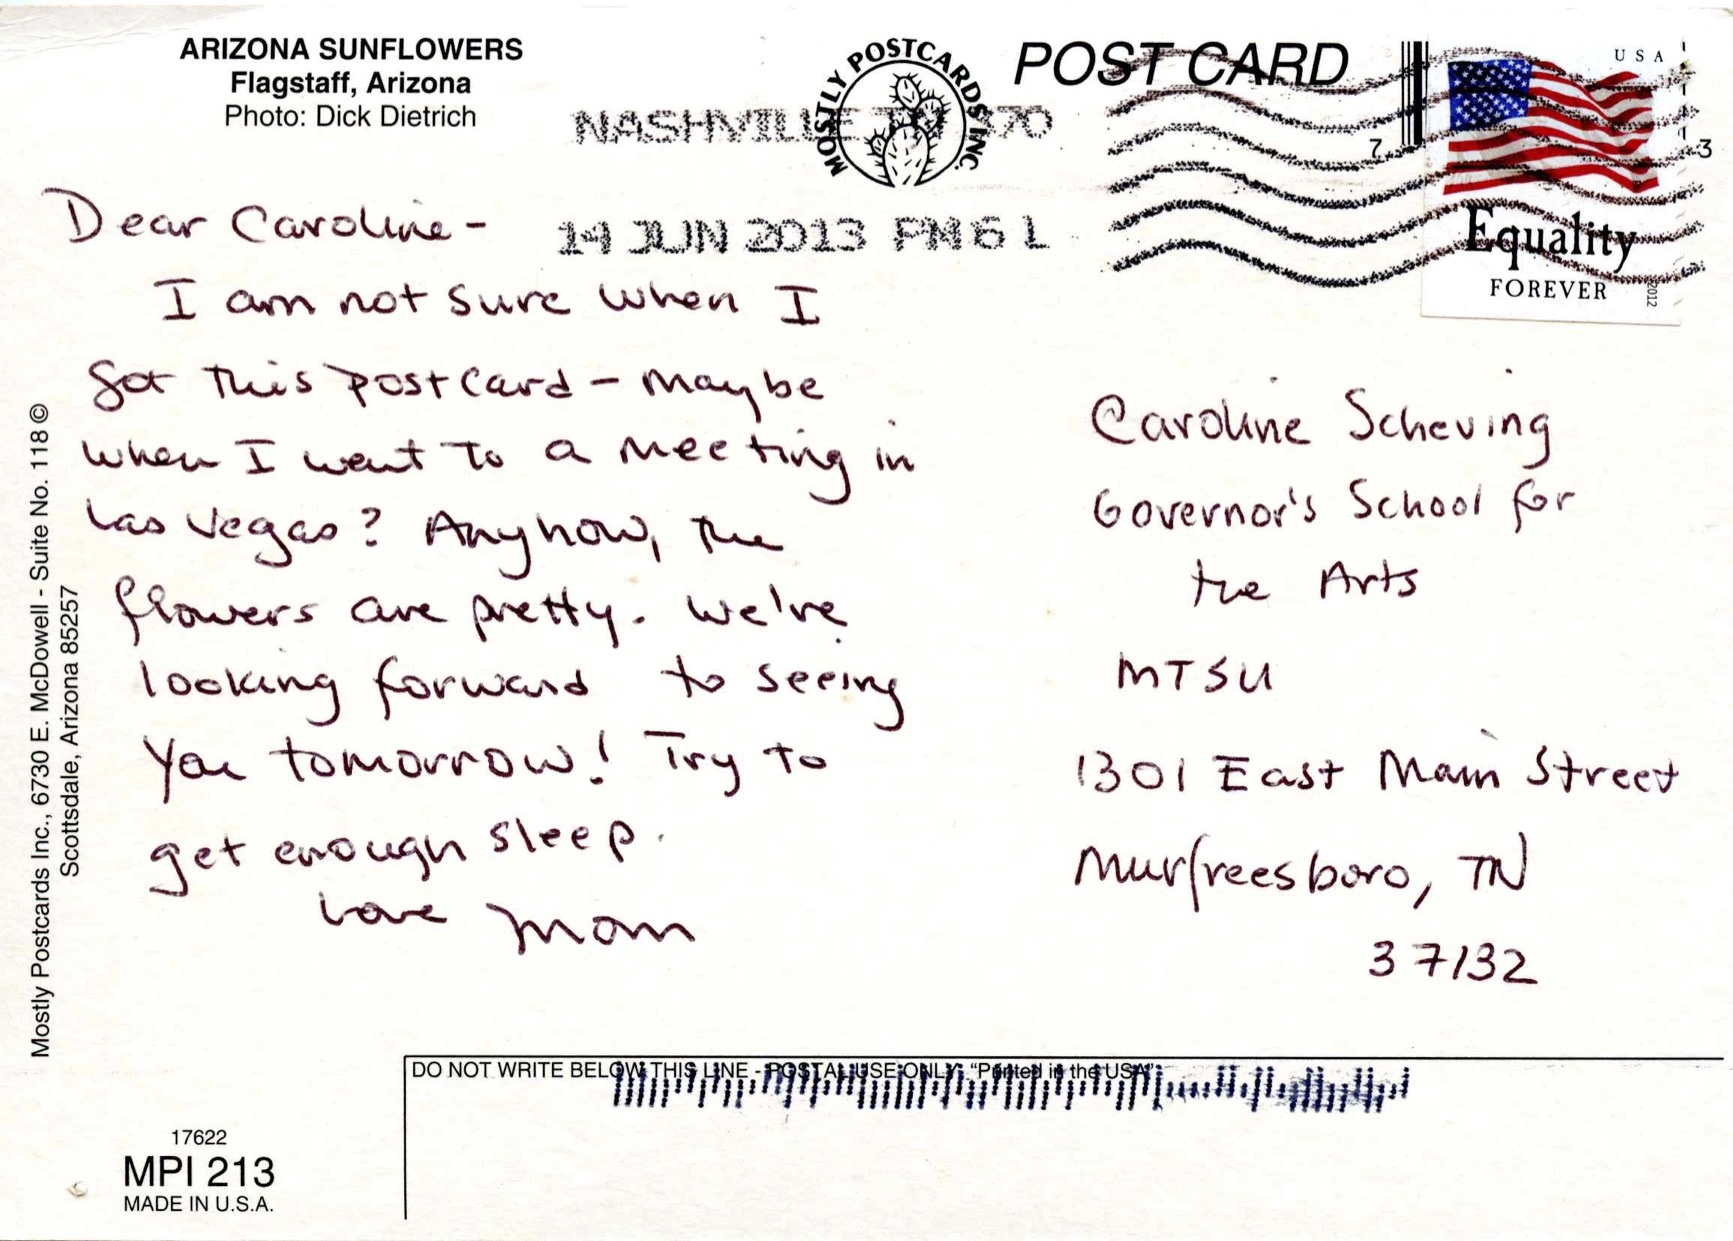 ARIZONA SUNFLOWERS
Flagstaff, Arizona
Photo: Dick Dietrich
MOSTLY POSTCARDS INC.
POST CARD
USA
Equality
FOREVER
2012
NASHVILLE TN 370
14 JUN 2013 PM 6 L
Dear Caroline -
I am not sure when I
got this postcard - maybe
when I went to a meeting in
Las Vegas? Anyhow, the
flowers are pretty. We're
looking forward to seeing
you tomorrow! Try to
get enough sleep.
Love Mom
Caroline Scheving
Governor's School for
the Arts
MTSU
1301 East Main Street
Murfreesboro, TN
37132
Mostly Postcards Inc., 6730 E. McDowell - Suite No. 118 ©
Scottsdale, Arizona 85257
DO NOT WRITE BELOW THIS LINE - POSTAL USE ONLY. "Printed in the USA"
17622
MPI 213
MADE IN U.S.A.
7
3